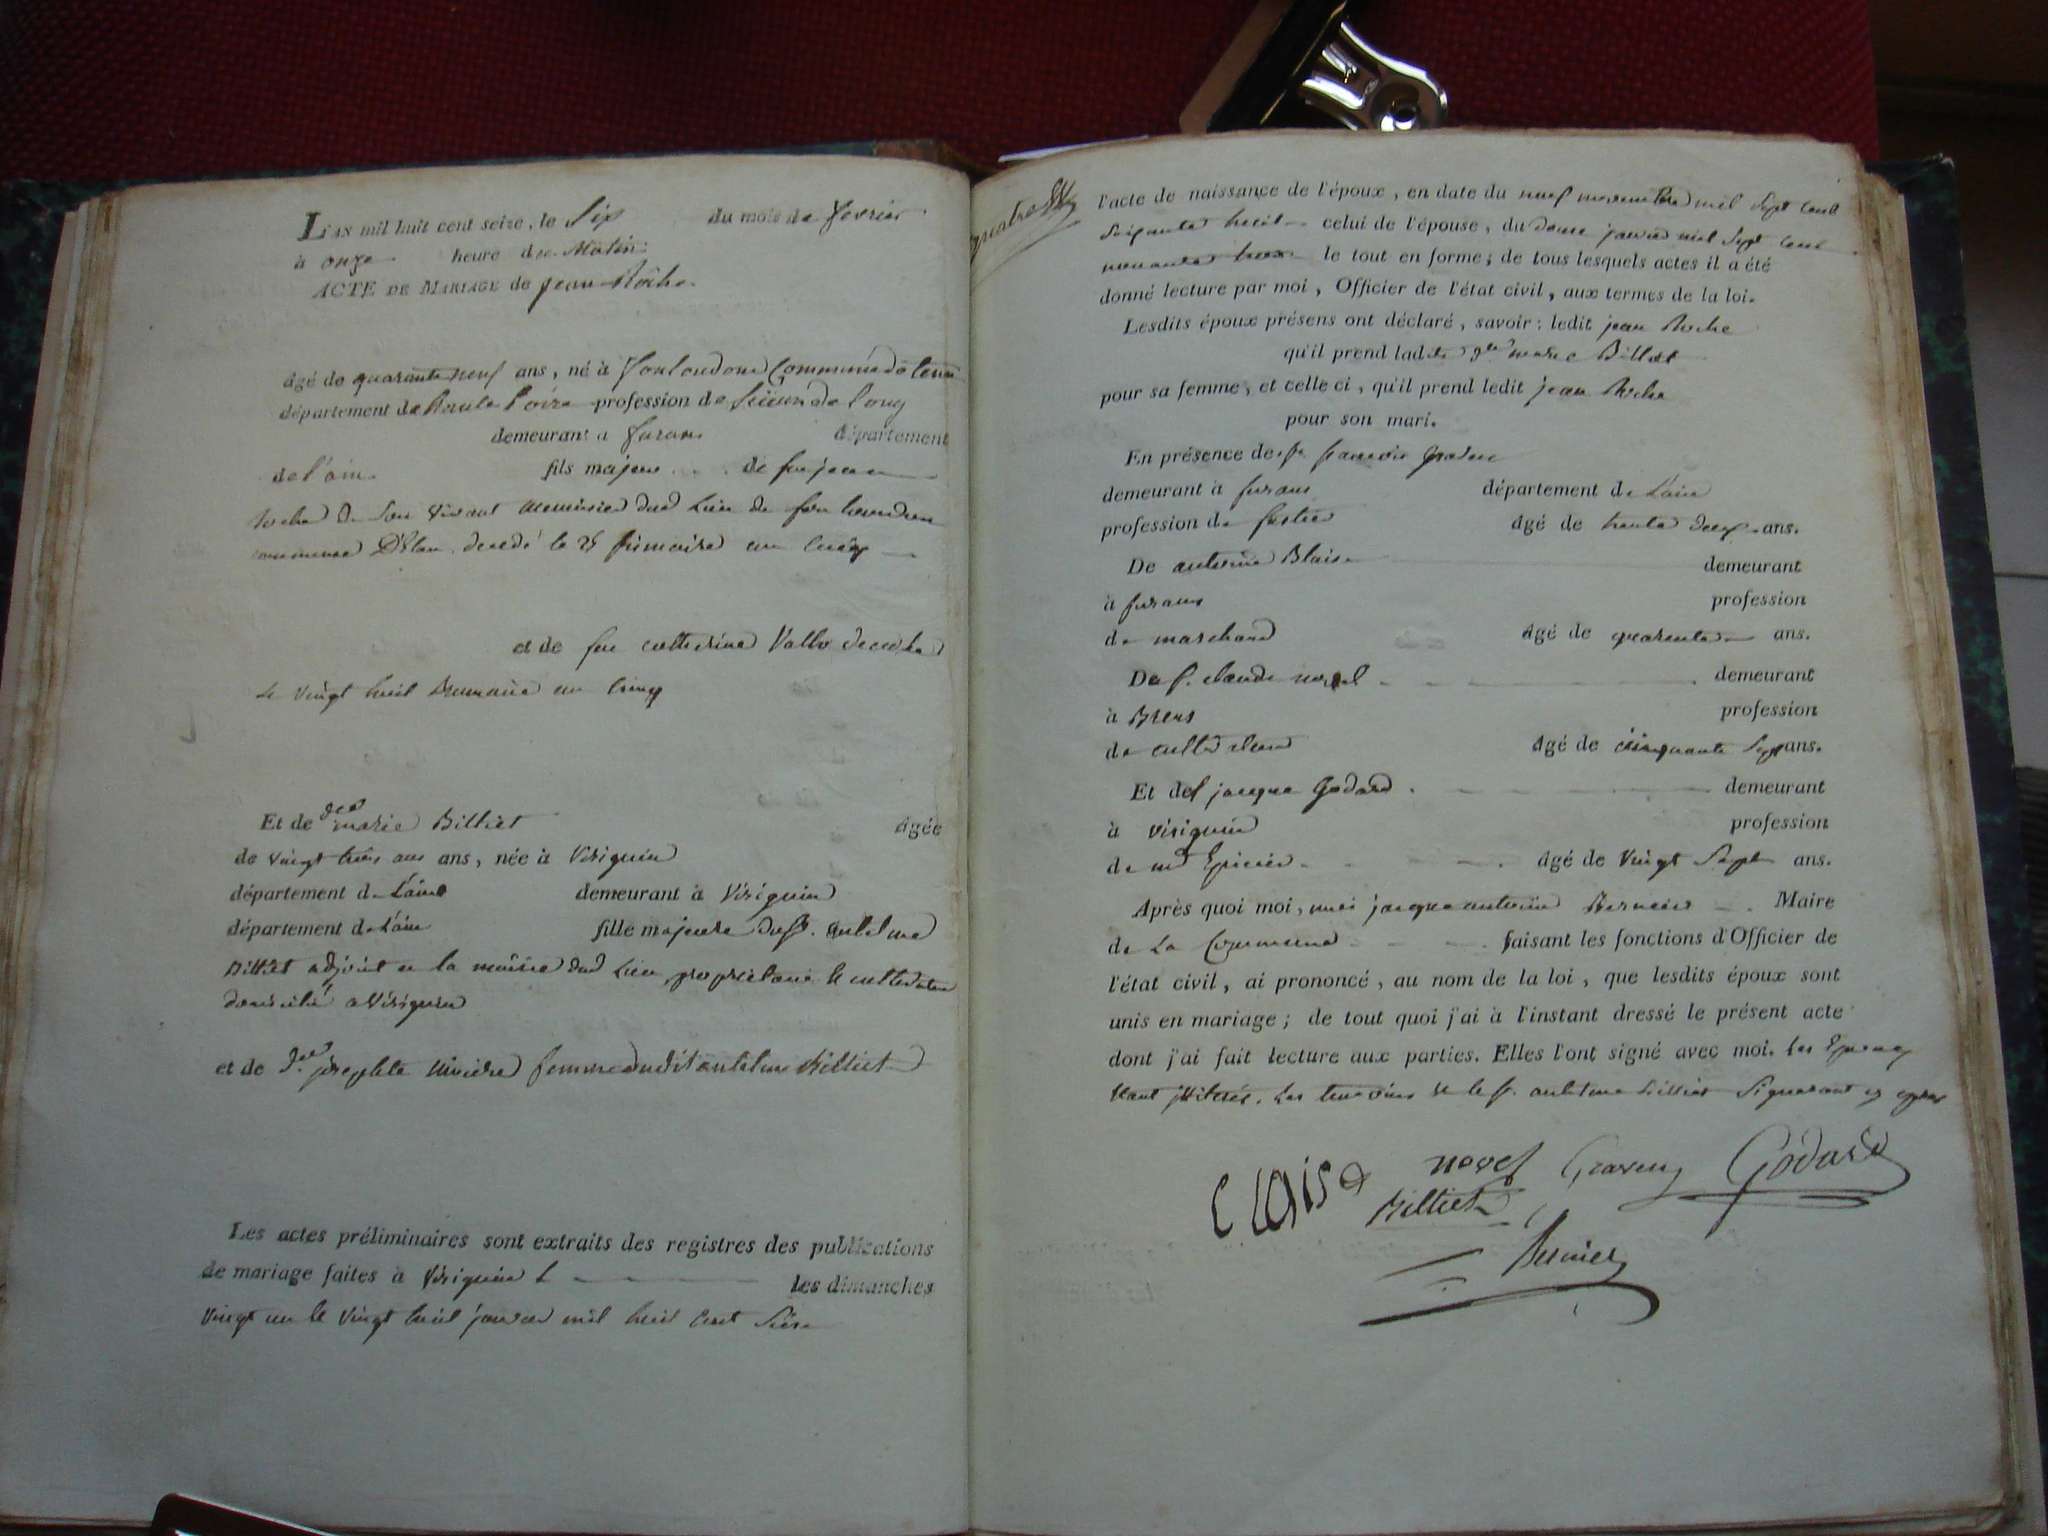 L'AN mil huit cent seize, le Six du mois de fevrier
à onze heure du Matin
ACTE DE MARIAGE de jean Rôche
Agé de quarante neuf ans, né à
département de haute Loire profession de Scieur de long
demeurant a furans département
de l'ain fils majeur de feu jean
roche de Son vivant menuisier dud Lieu de
commune decedé le 25 frimaire an cinq
et de feu catherine decedée
Le vingt huit Brumaire an Cinq
Et de dlle marie Billiet Agée
de vingt trois ans ans, née à Virignin
département de L'ain demeurant à Virignin
département de L'ain fille majeure du Sr. antelme
Billiet adjoint a la mairie dud Lieu, proprietaire & cultivateur
domicilié a Virignin
et de d. femme dudit antelme Billiet
Les actes préliminaires sont extraits des registres des publications
de mariage faites à Virignin L les dimanches
vingt un & vingt huit janvier mil huit Cent Seise
quatre
l'acte de naissance de l'époux, en date du neuf novembre mil Sept Cent
Soixante huit celui de l'épouse, du douse janvier mil Sept Cent
nonante trois le tout en forme; de tous lesquels actes il a été
donné lecture par moi, Officier de l'état civil, aux termes de la loi.
Lesdits époux présens ont déclaré, savoir: ledit jean Roche
qu'il prend ladite dlle marie Billiet
pour sa femme, et celle ci, qu'il prend ledit jean Roche
pour son mari.
En présence de Sr. francois
demeurant à furans département de L'ain
profession de Agé de trente deux ans.
De antoine Blaise demeurant
à furans profession
de marchand Agé de quarente ans.
De Sr. claude novel demeurant
à Brens profession
de cultivateur Agé de cinquante Sept ans.
Et de S jacque Godard demeurant
à virignin profession
de md Epicier Agé de Vingt Sept ans.
Après quoi moi, jacque antoine Bernier Maire
de La Commune faisant les fonctions d'Officier de
l'état civil, ai prononcé, au nom de la loi, que lesdits époux sont
unis en mariage; de tout quoi j'ai à l'instant dressé le présent acte
dont j'ai fait lecture aux parties. Elles l'ont signé avec moi. Les Epoux
étant illiterés. Les temoins & le Sr. antelme Billiet Signeront cy apres
novel Godard
Billiet
Bernier